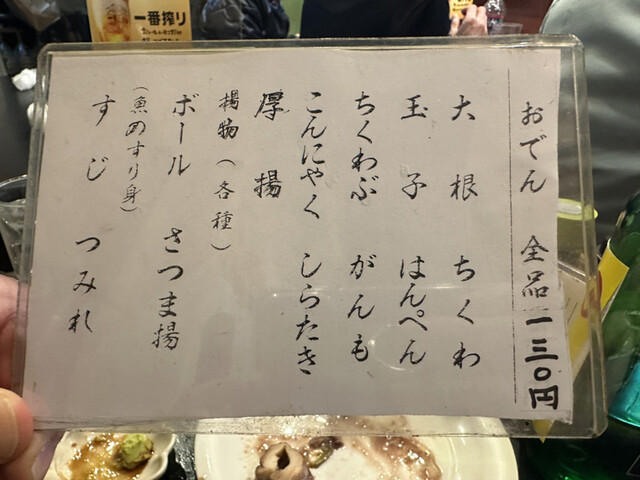 一番搾り
おでん 全品一三〇円
大根 ちくわ
玉子 はんぺん
ちくわぶ がんも
こんにゃく しらたき
厚揚
揚物(各種)
ボール さつま揚
(魚のすり身)
すじ つみれ